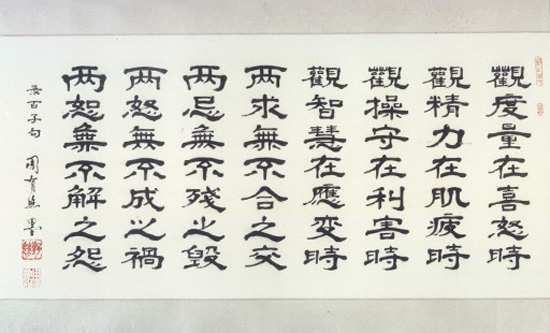 觀度量在喜怒時
觀精力在肌疲時
觀操守在利害時
觀智慧在應变時
两求無不合之交
两忌無不殘之毀
两怒無不成之禍
两恕無不解之怨
录百子句
周育墨